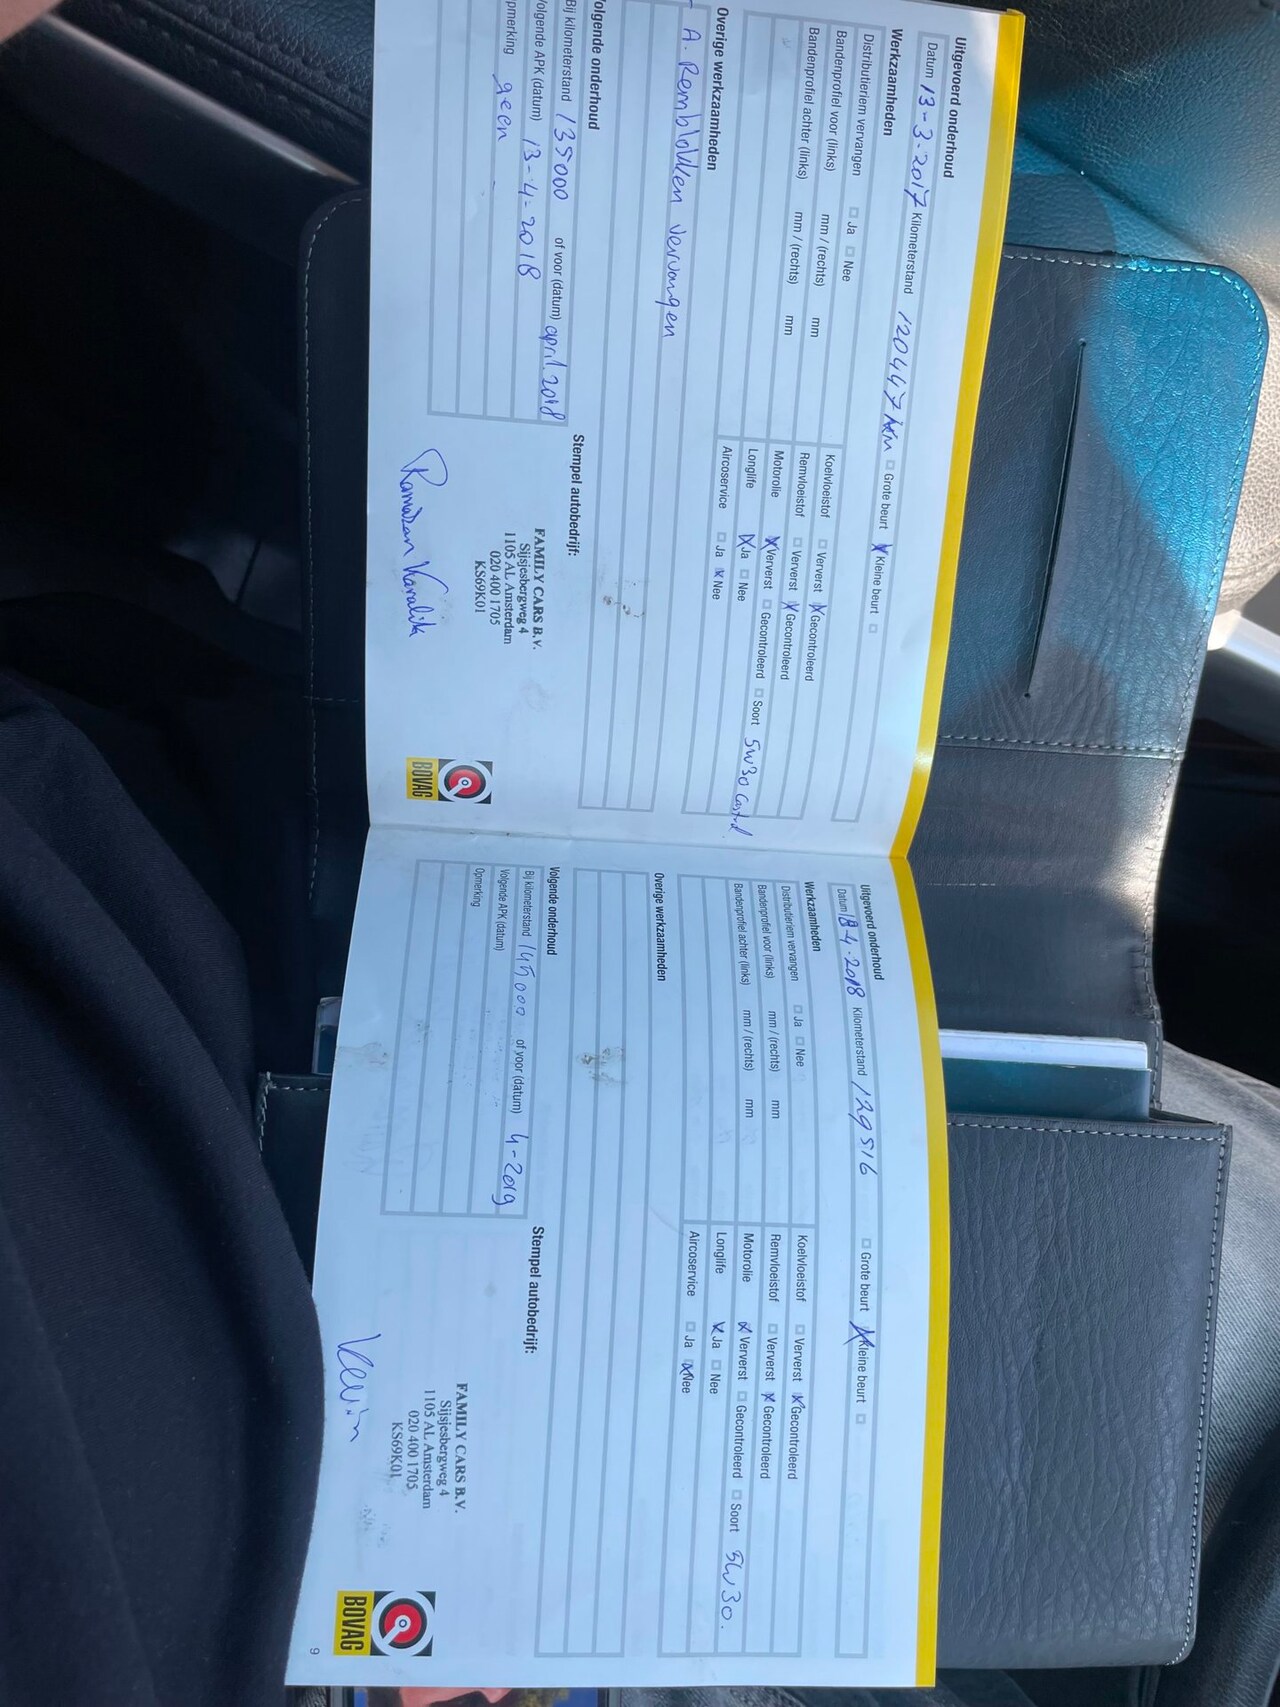 Uitgevoerd onderhoud
Datum 13-3-2017 Kilometerstand 120447 km Grote beurt Kleine beurt
Werkzaamheden
Distributieriem vervangen Ja Nee
Bandenprofiel voor (links) mm / (rechts) mm
Bandenprofiel achter (links) mm / (rechts) mm
Koelvloeistof Ververst Gecontroleerd
Remvloeistof Ververst Gecontroleerd
Motorolie Ververst Gecontroleerd Soort 5W30 Castrol
Longlife Ja Nee
Aircoservice Ja Nee
Overige werkzaamheden
- A. Remblokken vervangen
Volgende onderhoud
Bij kilometerstand 135000 of voor (datum) april.2018
Volgende APK (datum) 13-4-2018
Opmerking geen
Stempel autobedrijf:
FAMILY CARS B.V.
Sijsjesbergweg 4
1105 AL Amsterdam
020 400 1705
KS69K01
BOVAG
Uitgevoerd onderhoud
Datum 18-4-2018 Kilometerstand 129516 Grote beurt Kleine beurt
Werkzaamheden
Distributieriem vervangen Ja Nee
Bandenprofiel voor (links) mm / (rechts) mm
Bandenprofiel achter (links) mm / (rechts) mm
Koelvloeistof Ververst Gecontroleerd
Remvloeistof Ververst Gecontroleerd
Motorolie Ververst Gecontroleerd Soort 5W30.
Longlife Ja Nee
Aircoservice Ja Nee
Overige werkzaamheden
Volgende onderhoud
Bij kilometerstand 145000 of voor (datum) 4-2019
Volgende APK (datum)
Opmerking
Stempel autobedrijf:
FAMILY CARS B.V.
Sijsjesbergweg 4
1105 AL Amsterdam
020 400 1705
KS69K01
BOVAG
9